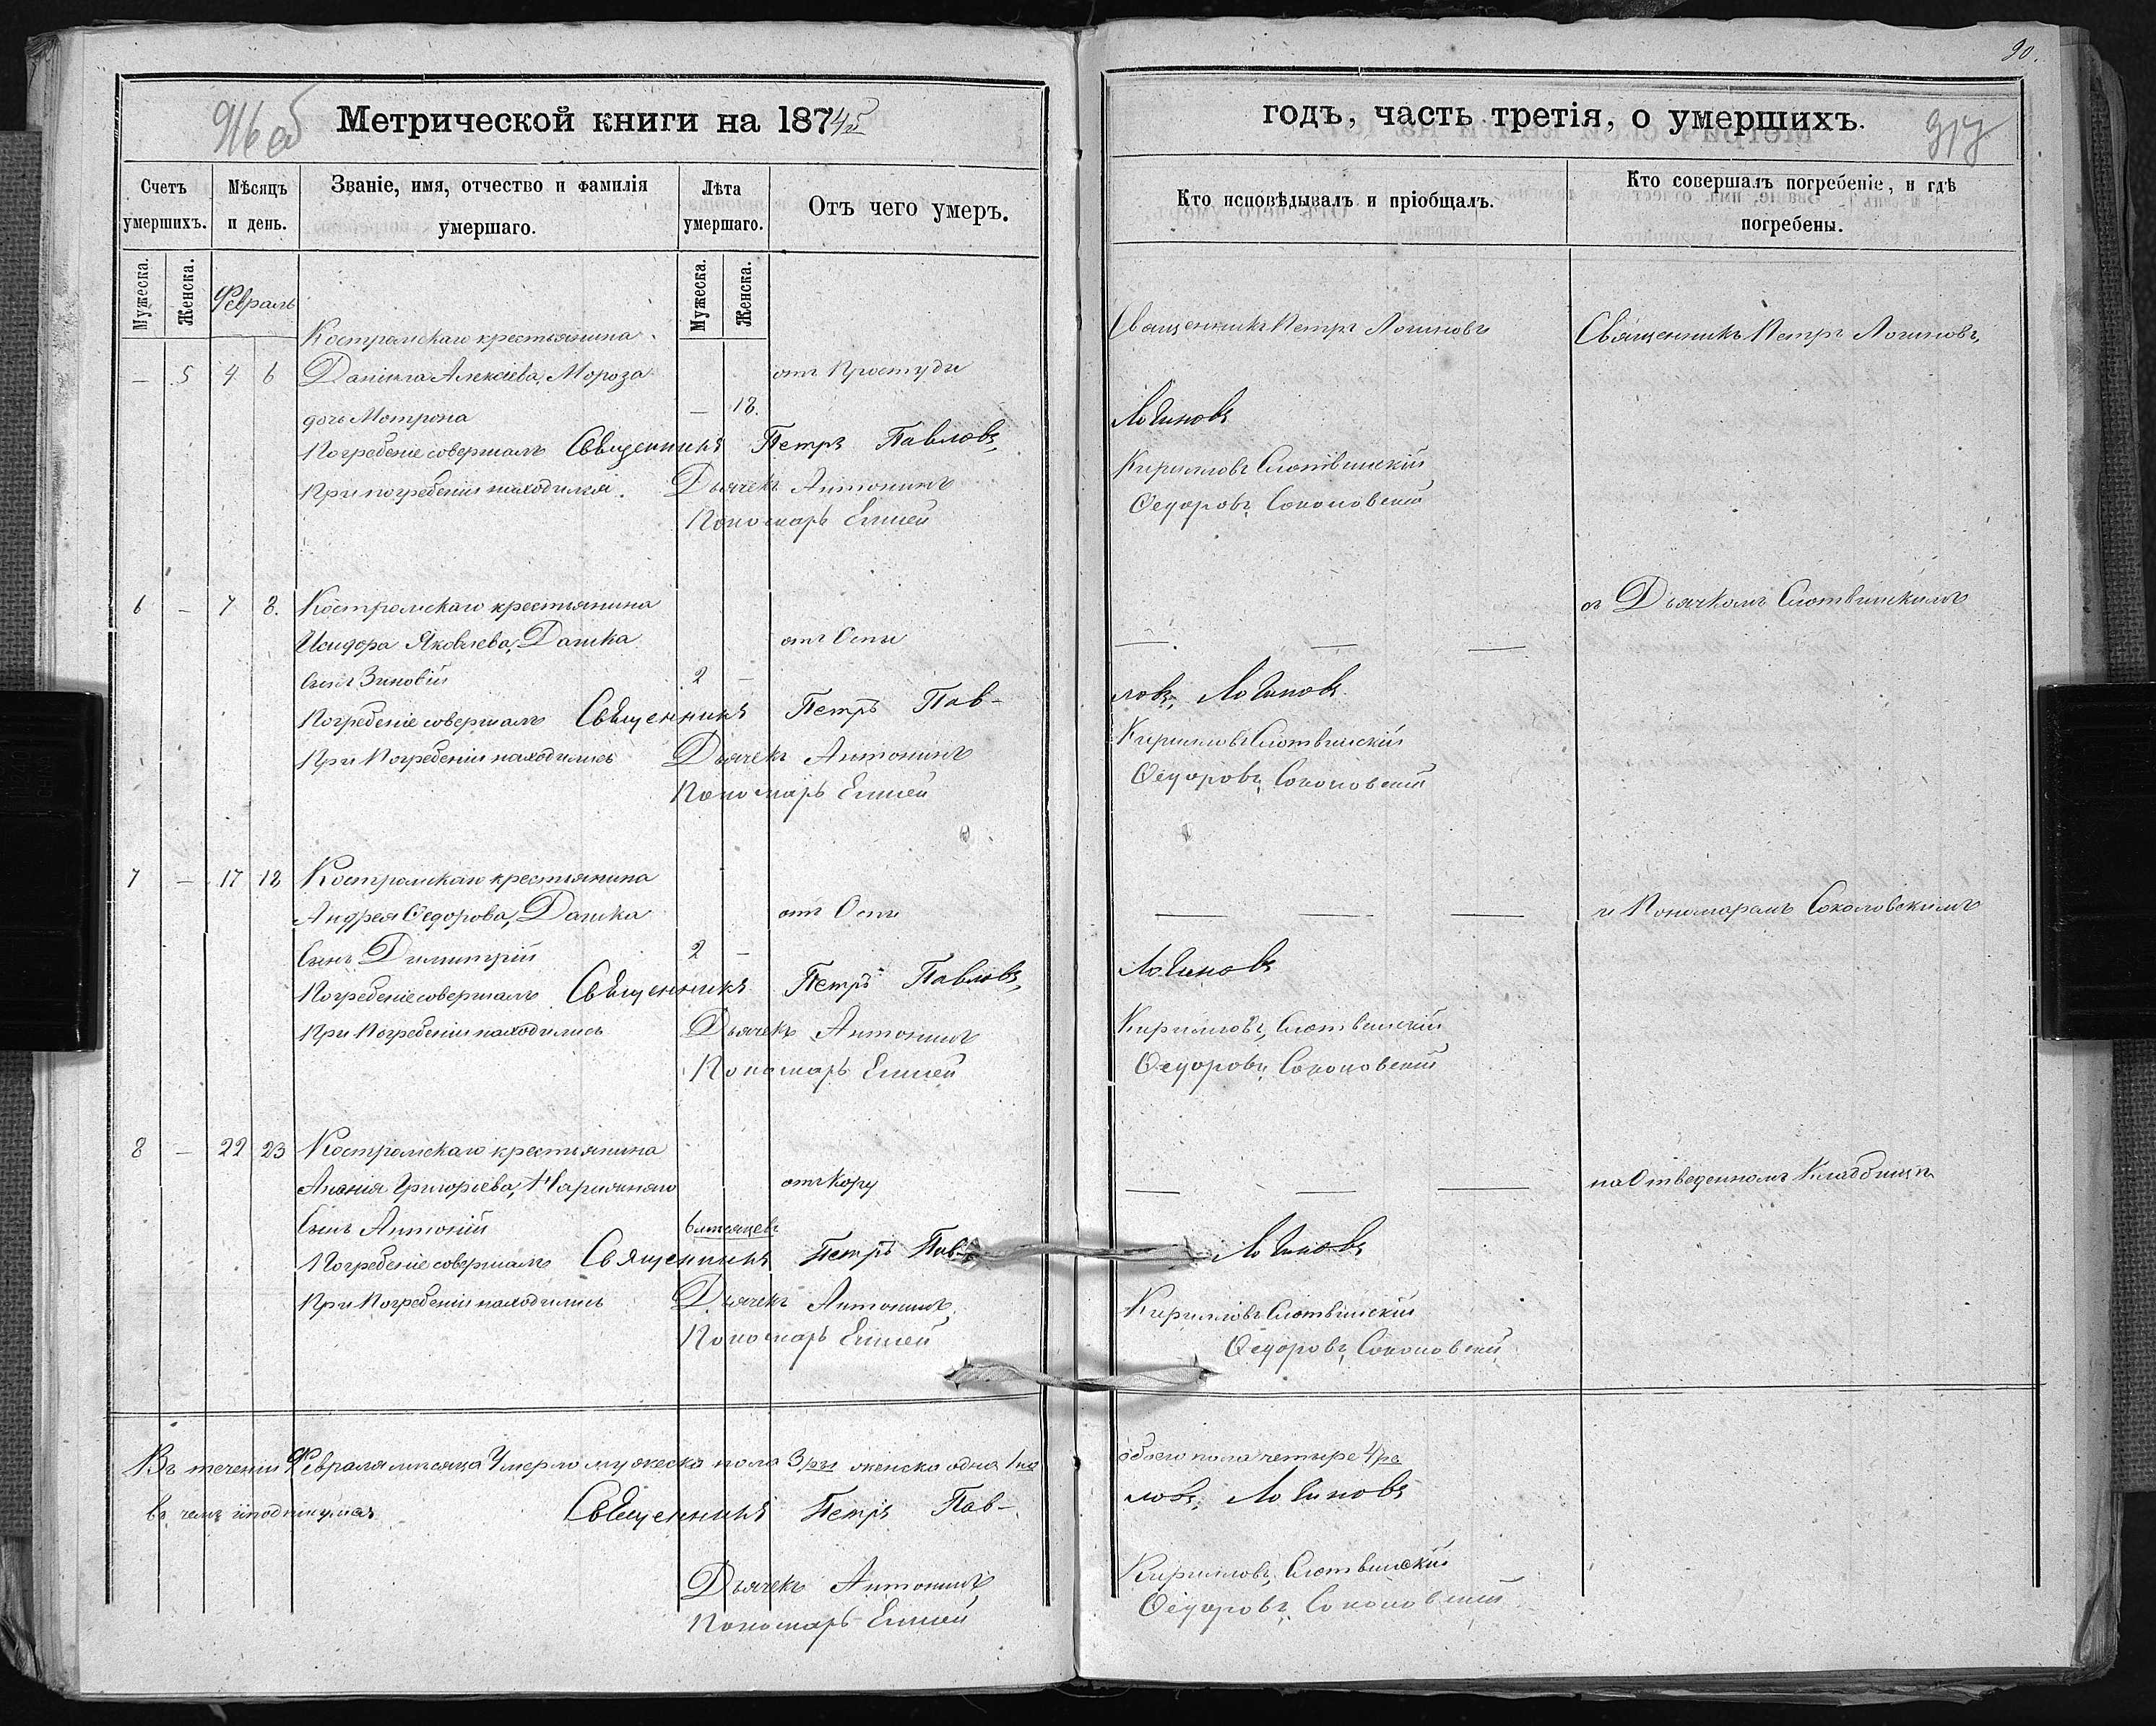 90.
916 об
Метрической книги на 1874й
годъ, часть третія, о умершихъ.
917
Счетъ умершихъ.
Мѣсяцъ и день.
Званіе, имя, отчество и фамилія умершаго.
Лѣта умершаго.
Отъ чего умеръ.
Кто исповѣдывалъ и пріобщалъ.
Кто совершалъ погребеніе, и гдѣ погребены.
Мужеска.
Женска.
Февраль
Мужеска.
Женска.
Костромскаго крестьянина
Священникъ Петръ Логиновъ
Священникъ Петръ Логиновъ,
— 5 4 6 Даніила Алексіева, Мороза
отъ Простуды
дочь Мотрона — 18.
Погребеніе совершалъ Священникъ Петръ Павловъ, Логиновъ
При погребеніи находился. Дьячекъ Антонинъ Кирилловъ Слотвинскій
Пономарь Елисей Ѳедоровъ, Соколовскій
6 — 7 8. Костромскаго крестьянина
съ Дьячкомъ Слотвинскимъ
Исидора Яковлева, Дашка
отъ Оспы — — —
сынъ Зиновій 2 —
Погребеніе совершалъ Священникъ Петръ Пав-ловъ, Логиновъ
При Погребеніи находились Дьячекъ Антонинъ Кирилловъ Слотвинскій
Пономарь Елисей Ѳедоровъ, Соколовскій
7 — 17 18 Костромскаго крестьянина
Андрея Ѳедорова, Дашка
отъ Оспы — — —
и Пономаремъ Соколовскимъ
Сынъ Димитрій 2 —
Погребеніе совершалъ Священникъ Петръ Павловъ, Логиновъ
При Погребеніи находились Дьячекъ Антонинъ Кирилловъ, Слотвинскій
Пономарь Елисей Ѳедоровъ, Соколовскій
8 — 22 23 Костромскаго крестьянина
Ананія Григорьева,
отъ Кору — — —
на Отведенномъ Кладбищѣ
Сынъ Антоній 6 мѣсяцевъ
Погребеніе совершалъ Священникъ Петръ Пав- Логиновъ
При Погребеніи находились Дьячекъ Антонинъ, Кирилловъ Слотвинскій
Пономарь Елисей Ѳедоровъ, Соколовскій
Въ теченіи Февраля мѣсяца Умерло мужеска пола 3ри женска одна 1на обоего пола четыре 4ре
въ чемъ и подпишемся Священникъ Петръ Пав-ловъ, Логиновъ
Дьячекъ Антонинъ, Кирилловъ, Слотвинскій
Пономарь Елисей Ѳедоровъ, Соколовскій